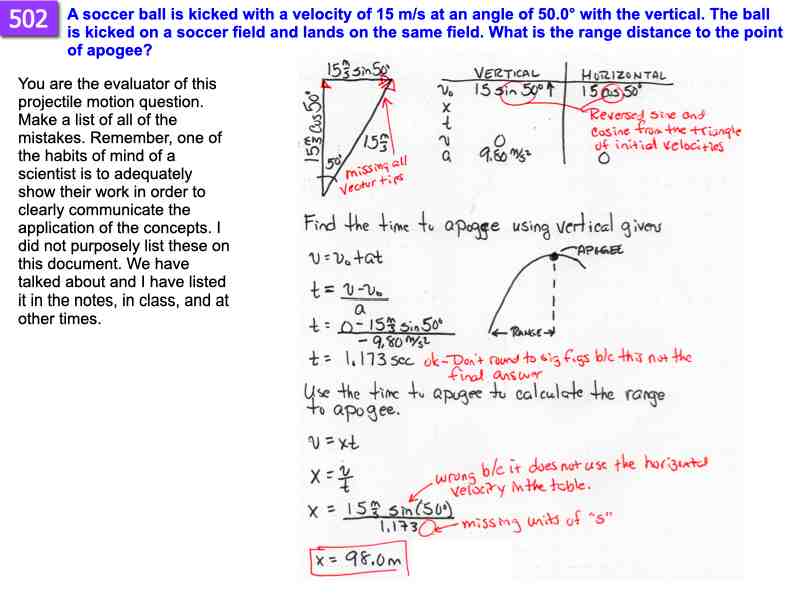 502
A soccer ball is kicked with a velocity of 15 m/s at an angle of 50.0° with the vertical. The ball
is kicked on a soccer field and lands on the same field. What is the range distance to the point
of apogee?
You are the evaluator of this
projectile motion question.
Make a list of all of the
mistakes. Remember, one of
the habits of mind of a
scientist is to adequately
show their work in order to
clearly communicate the
application of the concepts. I
did not purposely list these on
this document. We have
talked about and I have listed
it in the notes, in class, and at
other times.
15 m/s sin 50°
15 m/s cos 50°
15 m/s
50°
missing all
vector tips
VERTICAL HORIZONTAL
v₀ 15 sin 50° ↑ 15 cos 50°
x
t
v 0
a 9.80 m/s² 0
Reversed sine and
cosine from the triangle
of initial velocities
Find the time to apogee using vertical givens
v = v₀ + at
t = v - v₀ / a
t = 0 - 15 m/s sin 50° / -9.80 m/s²
t = 1.173 sec
ok - Don't round to sig figs b/c this not the
final answer
APOGEE
RANGE
Use the time to apogee to calculate the range
to apogee.
v = xt
x = v/t
x = 15 m/s sin(50°) / 1.173
wrong b/c it does not use the horizontal
velocity in the table.
missing units of "s"
x = 98.0m